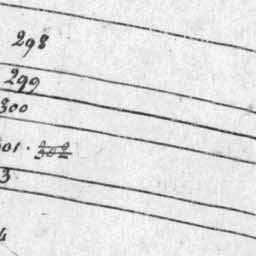 298
299
300
01 . 302
3
4